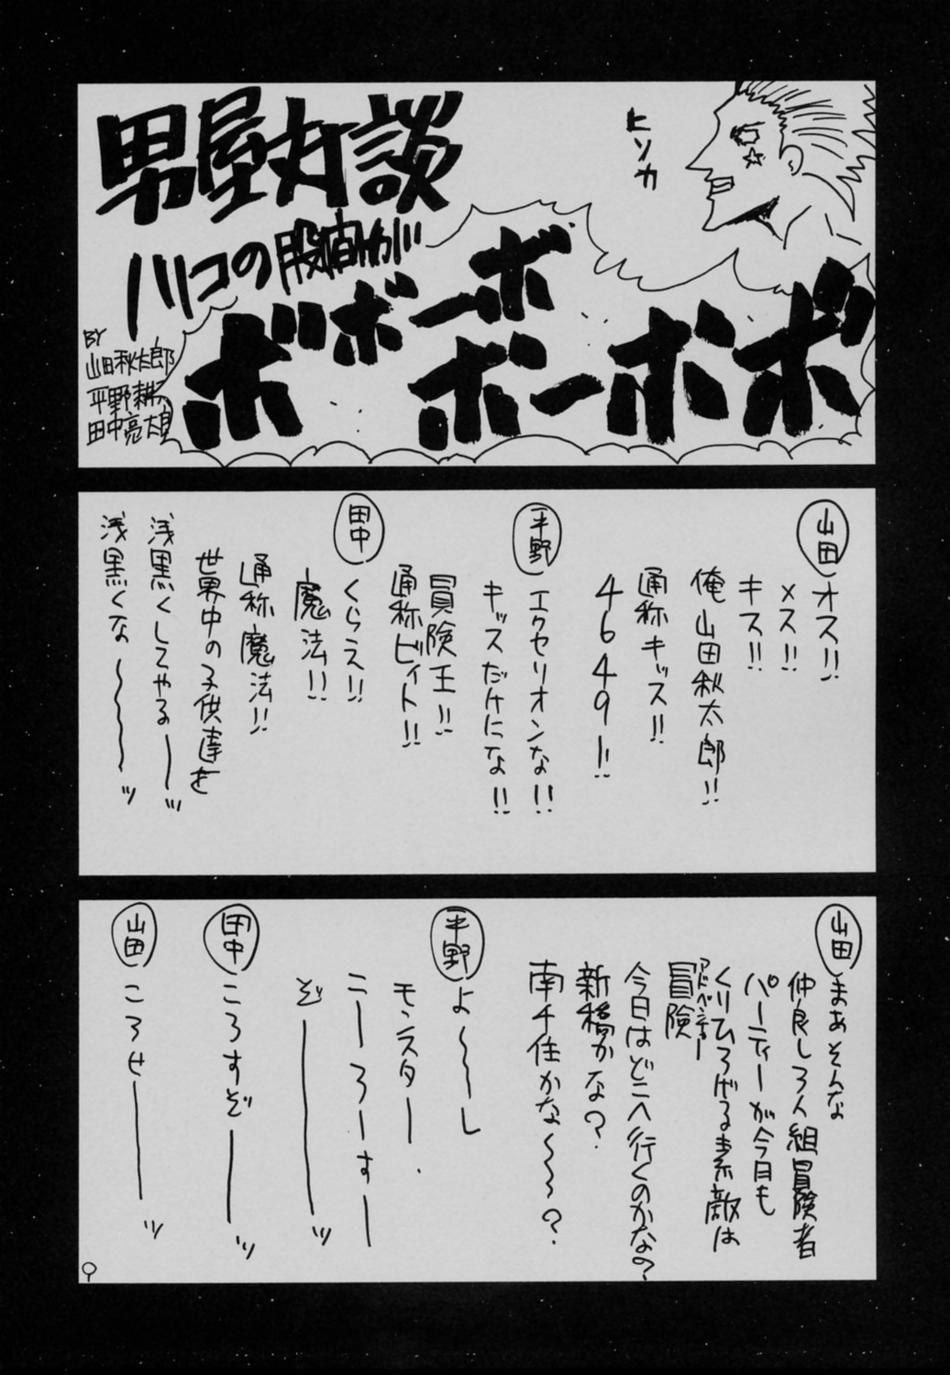 男屋対談
ハリコの股間が
ボボーボボーボボ
ヒソカ
BY
山田秋太郎
平野耕太
田中亮大
山田
オス!!
メス!!
キス!!
俺山田秋太郎!!
通称キッス!!
4649ー!!
平野
エクセリオンな!!
キッスだけにな!!
冒険王!!
通称ビィト!!
田中
くらえ!!
魔法!!
通称魔法!!
世界中の子供達を
浅黒くしてやるーッ
浅黒くな〜〜〜ッ
山田
まあそんな
仲良し3人組冒険者
パーティーが今日も
くりひろげる素敵は
冒険
アドベンチャー
今日はどこへ行くのかな?
新橋かな?
南千住かな〜〜?
平野
よ〜〜し
モンスター
こーろーすー
ぞーーッ
田中
ころすぞーーッ
山田
ころせーーッ